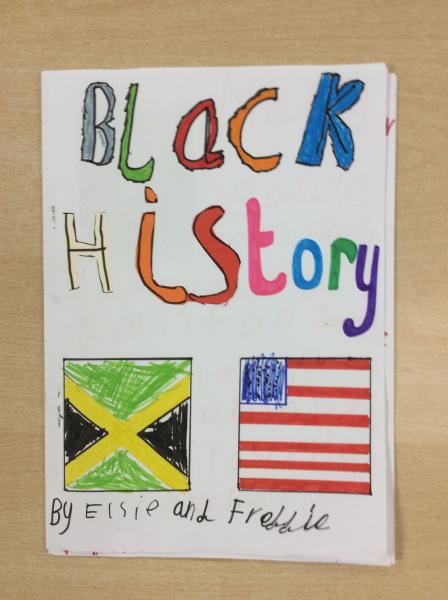 Black
History
By Elsie and Freddie